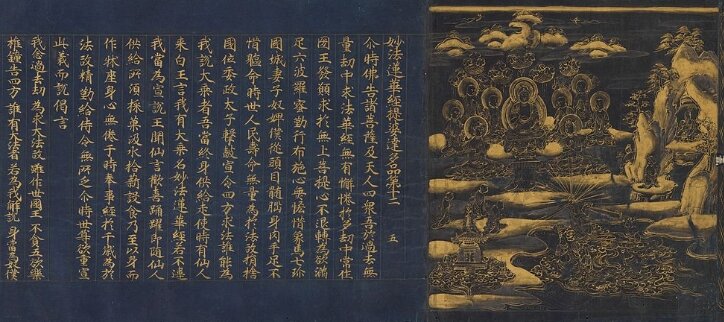 妙法蓮華經提婆達多品第十二 五
尒時佛告諸菩薩及天人四眾吾於過去無
量劫中求法華經無有懈惓於多劫中常作
國王發願求於無上菩提心不退轉為欲滿
足六波羅蜜勤行布施心無悋惜象馬七珍
國城妻子奴婢僕從頭目髓腦身肉手足不
惜軀命時世人民壽命無量為於法故捐捨
國位委政太子擊鼓宣令四方求法誰能為
我說大乘者吾當終身供給走使時有仙人
來白王言我有大乘名妙法蓮華經若不違
我當為宣說王聞仙言歡喜踊躍即隨仙人
供給所須採菓汲水拾薪設食乃至以身而
作牀座身心無惓于時奉事經於千歲為於
法故精勤給侍令無所乏尒時世尊欲重宣
此義而說偈言
我念過去劫 為求大法故 雖作世國王 不貪五欲樂
椎鍾告四方 誰有大法者 若為我解說 身當為奴僕